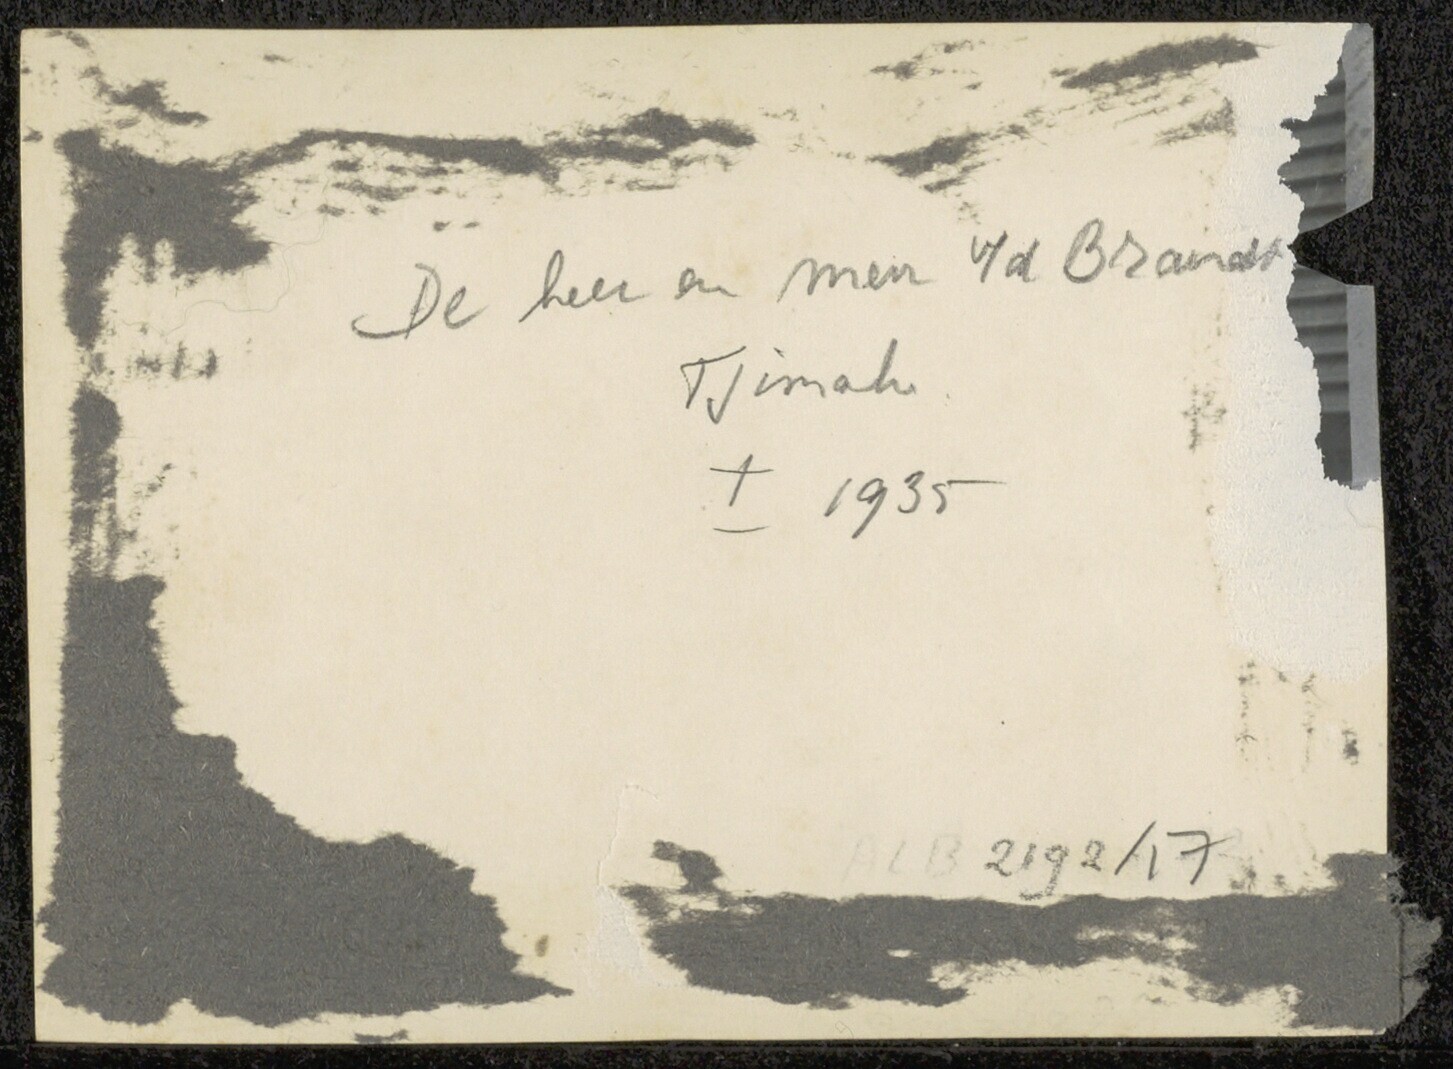 De heer en mevr v/d Brandt
Tjimahi.
± 1935
ALB 2192/17